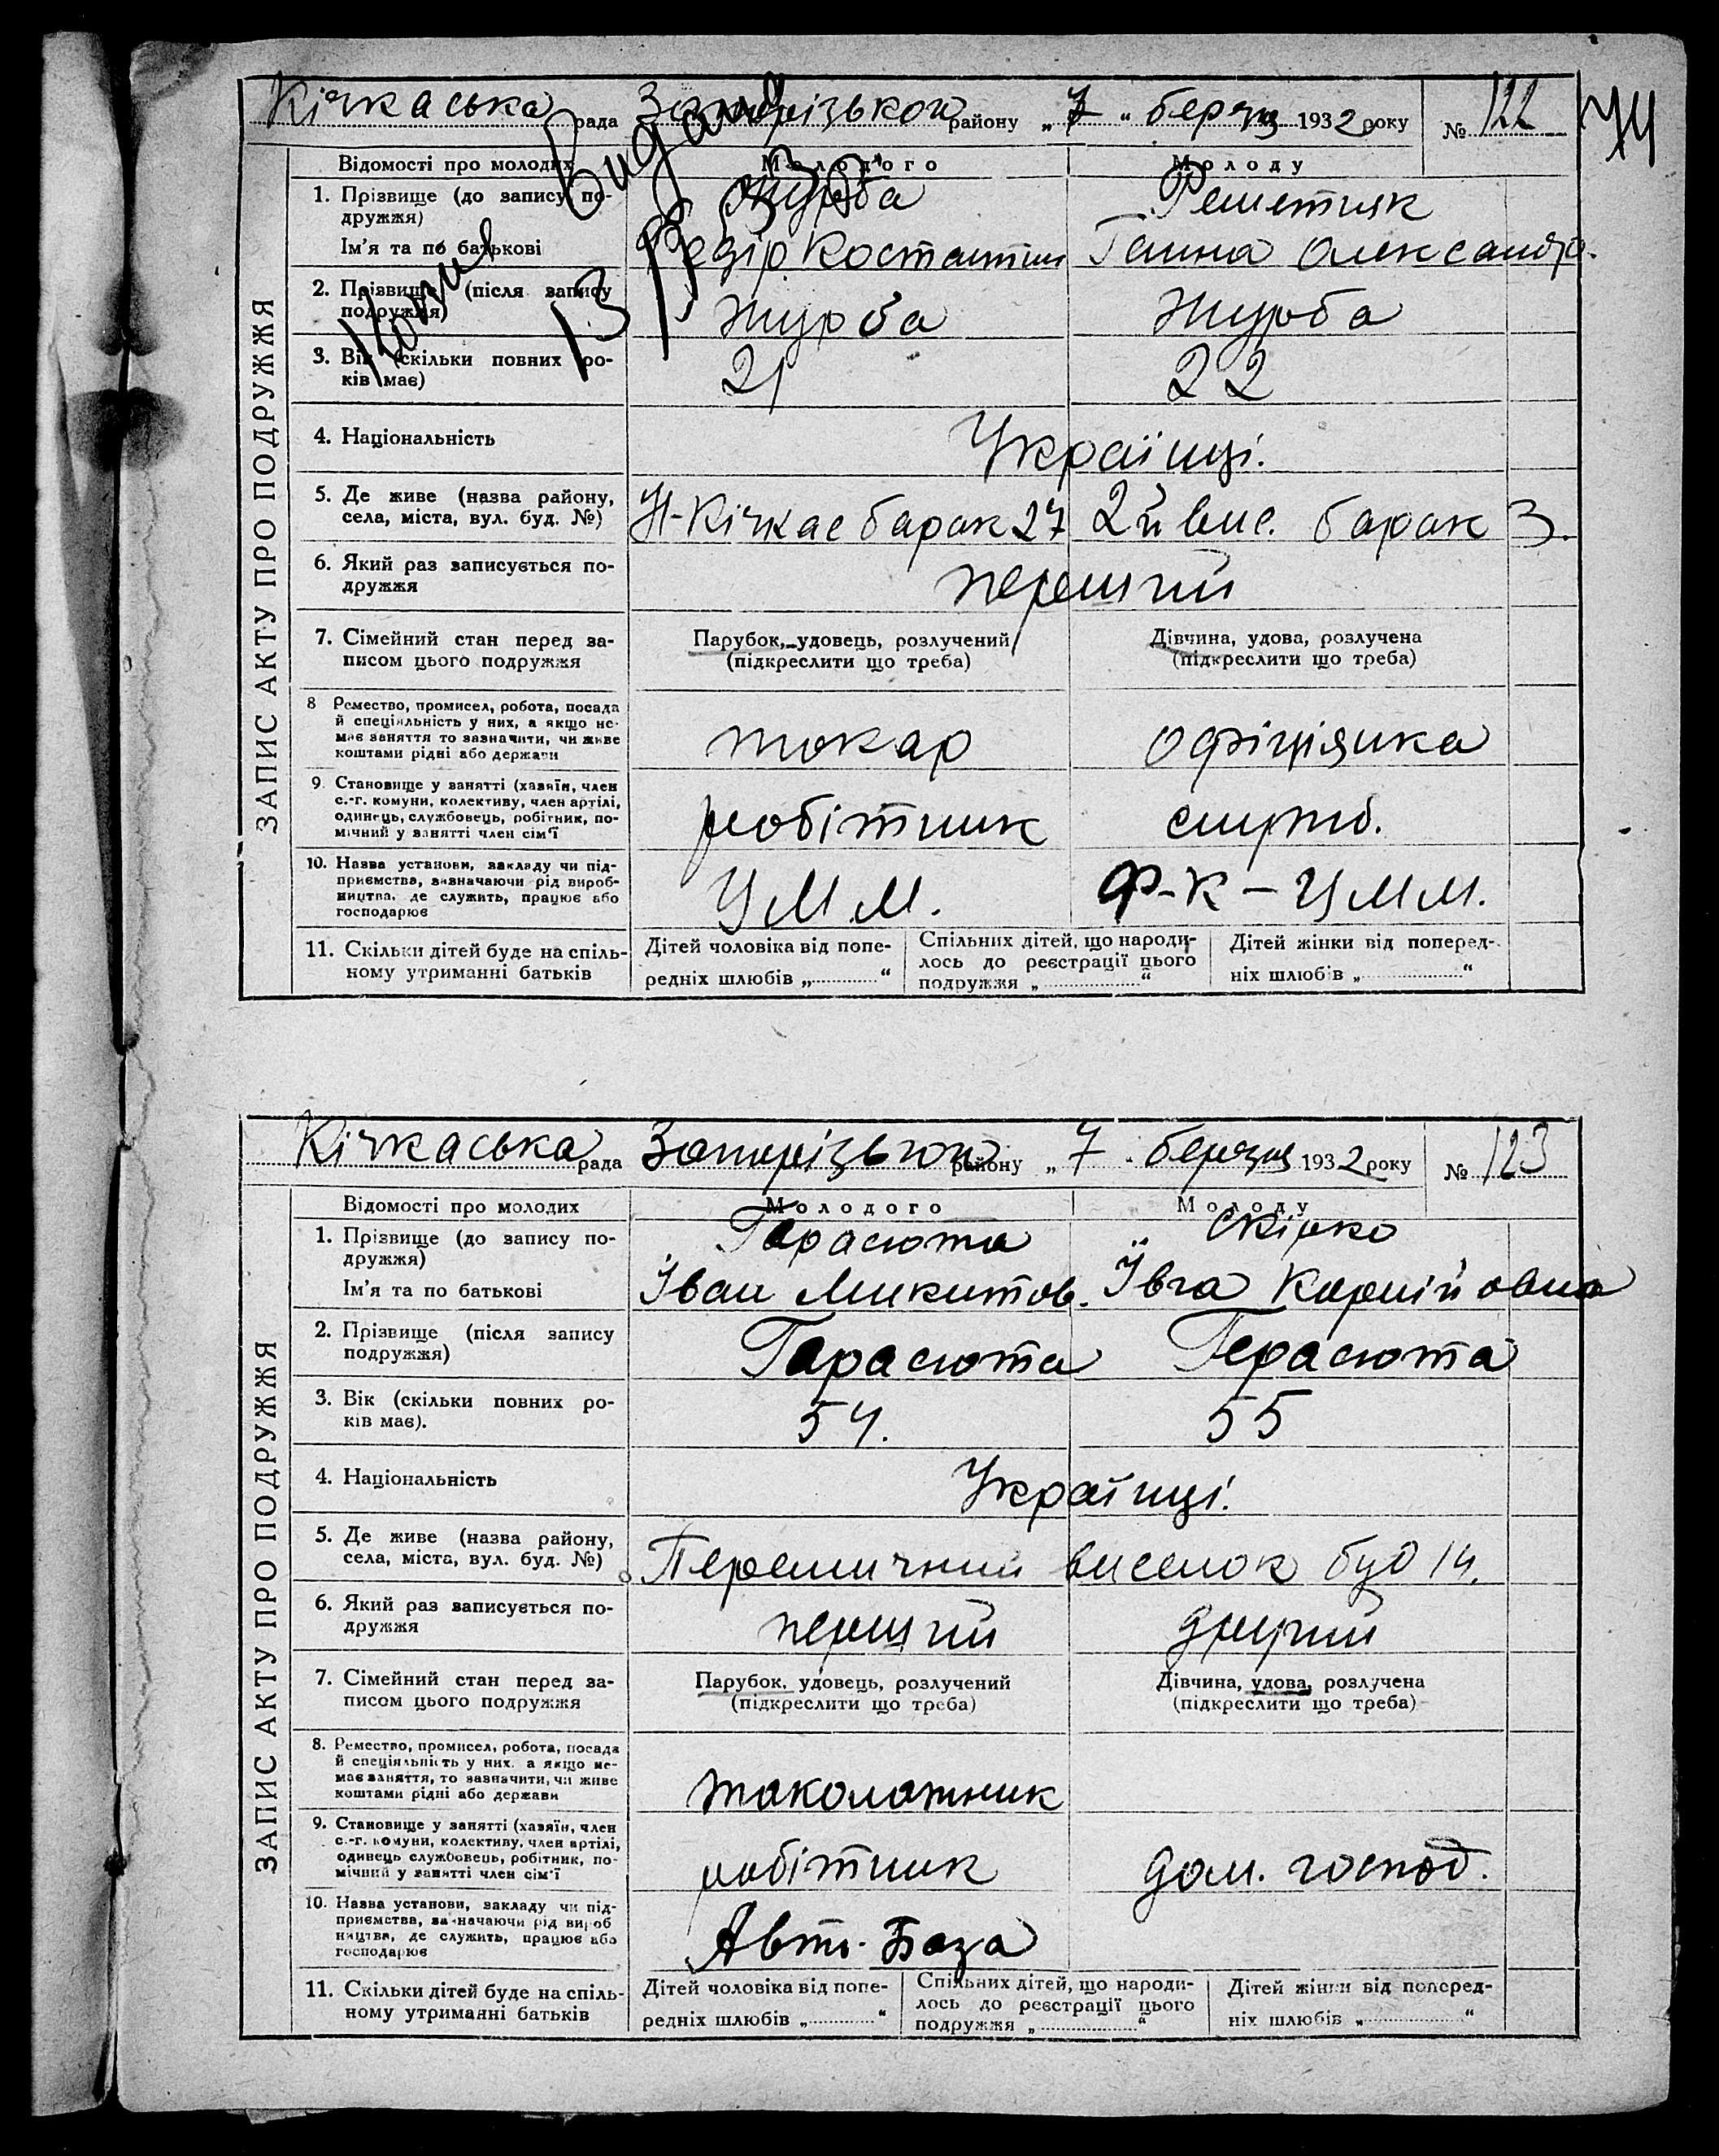 74
Кічкаська рада Запорізької району „7“ березня 1932 року № 122
Копія видана
13
ЗАПИС АКТУ ПРО ПОДРУЖЖЯ
Відомості про молодих Молодого Молоду
1. Прізвище (до запису по-
дружжя) Журба Решетняк
Ім'я та по батькові Федір Костантин Ганна Олександр.
2. Прізвище (після запису
подружжя) Журба Журба
3. Вік (скільки повних ро-
ків має) 21 22
4. Національність Українці.
5. Де живе (назва району,
села, міста, вул. буд. №) Н-Кічкас барак 27 2й вис. барак 3.
6. Який раз записується по-
дружжя перший
7. Сімейний стан перед за- Парубок, удовець, розлучений Дівчина, удова, розлучена
писом цього подружжя (підкреслити що треба) (підкреслити що треба)
8 Ремество, промисел, робота, посада
й спеціяльність у них, а якщо не-
має заняття то зазначити, чи живе
коштами рідні або держави токар офіціянка
9. Становище у занятті (хазяїн, член
с.-г. комуни, колективу, член артілі,
одинець, службовець, робітник, по-
мічний у занятті член сім'ї робітник служб.
10. Назва установи, закладу чи під-
приємства, зазначаючи рід вироб-
ництва, де служить, працює або
господарює ЦММ. Ф-К – ЦММ.
11. Скільки дітей буде на спіль- Дітей чоловіка від попе- Спільних дітей, що народи- Дітей жінки від поперед-
ному утриманні батьків редніх шлюбів „ “ лось до реєстрації цього подружжя „ “ ніх шлюбів „ “
Кічкаська рада Запорізької району „7“ березня 1932 року № 123
ЗАПИС АКТУ ПРО ПОДРУЖЖЯ
Відомості про молодих Молодого Молоду
1. Прізвище (до запису по-
дружжя) Гарасюта Скірко
Ім'я та по батькові Іван Микитов. Ївга Карпійовна
2. Прізвище (після запису
подружжя) Гарасюта Герасюта
3. Вік (скільки повних ро-
ків має). 54. 55
4. Національність Українці.
5. Де живе (назва району,
села, міста, вул. буд. №) виселок буд 14.
6. Який раз записується по-
дружжя перший другий
7. Сімейний стан перед за- Парубок, удовець, розлучений Дівчина, удова, розлучена
писом цього подружжя (підкреслити що треба) (підкреслити що треба)
8. Ремество, промисел, робота, посада
й спеціяльність у них, а якщо не-
має заняття, то зазначити, чи живе
коштами рідні або держави
9. Становище у занятті (хазяїн, член
с.-г. комуни, колективу, член артілі,
одинець службовець, робітник, по-
мічний у занятті член сім'ї робітник дом. господ.
10. Назва установи, закладу чи під-
приємства, зазначаючи рід вироб
ництва, де служить, працює або
господарює Авто-База
11. Скільки дітей буде на спіль- Дітей чоловіка від попе- Спільних дітей, що народи- Дітей жінки від поперед-
ному утриманні батьків редніх шлюбів „ “ лось до реєстрації цього подружжя „ “ ніх шлюбів „ “